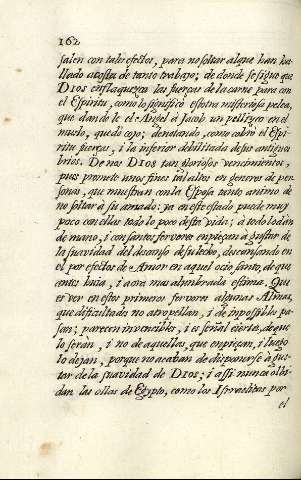 162
salen con tales efectos, para no soltar al que han ha-
llado acosta de tanto trabajo; de donde se sigue que
DIOS enflaquezca las fuerças de la carne para con
el Espiritu, como lo significò esotra misteriosa pelea,
que dandole el Angel à Jacob un pellizco en el
muslo, quedò cojo; denotando, como cobrò el Espi-
ritu fuerças, i la inferior debilitada de sus antiguos
brios. Denos DIOS tan gloriosos vencimientos,
pues promete unos fines tal altos en genero de per-
sonas, que muestran con la Esposa tanto animo de
no soltar à su amado: ya en este estado puede muy
poco con ellas todo lo poco desta vida; a todo lo dàn
de mano, i con santos fervores enpieçan à gustar de
la suavidad del descanso de su lecho, descansando en
el por efectos de Amor en aquel ocio santo, de que
antes huia, i aora mas alumbrada estima. Que
es ver en estos primeros fervores algunas Almas,
que dificultad no atropellan, i de inposibles pa-
san; parecen invencibles, i es señal cierta, de que
lo seràn, i no de aquellas, que enpieçan, i luego
lo dejan, porque no acaban de disponerse à gus-
tar de la suavidad de DIOS; i assi nunca olvi-
dan las ollas de Egypto, como los Isrraelitas por
el